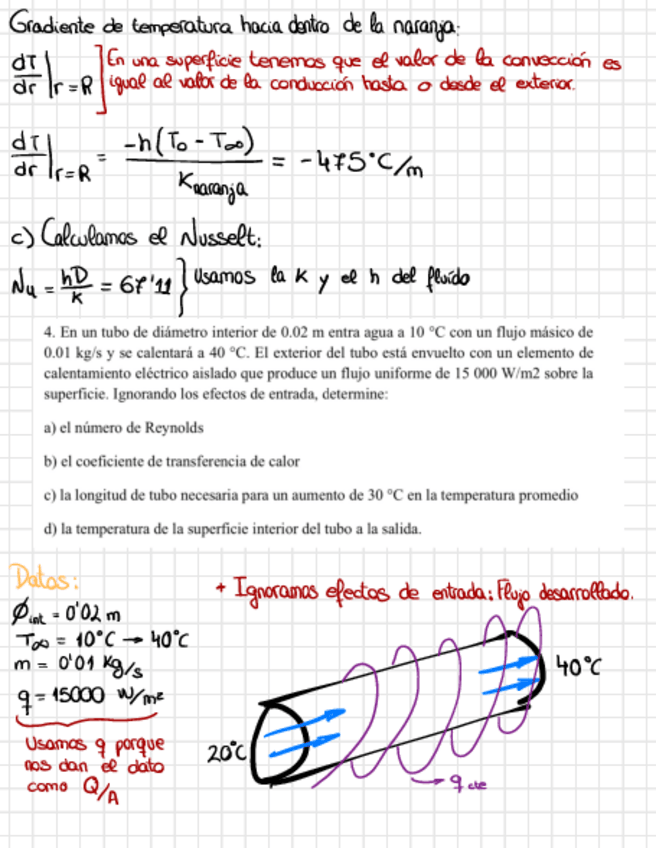 Gradiente de temperatura hacia dentro de la naranja:
dT/dr|r=R ] En una superficie tenemos que el valor de la convección es
igual al valor de la conducción hasta o desde el exterior.
dT/dr|r=R = -h(To - T∞)/Knaranja = -475°C/m
c) Calculamos el Nusselt:
Nu = hD/K = 67'11 } Usamos la K y el h del fluido
4. En un tubo de diámetro interior de 0.02 m entra agua a 10 °C con un flujo másico de
0.01 kg/s y se calentará a 40 °C. El exterior del tubo está envuelto con un elemento de
calentamiento eléctrico aislado que produce un flujo uniforme de 15 000 W/m2 sobre la
superficie. Ignorando los efectos de entrada, determine:
a) el número de Reynolds
b) el coeficiente de transferencia de calor
c) la longitud de tubo necesaria para un aumento de 30 °C en la temperatura promedio
d) la temperatura de la superficie interior del tubo a la salida.
Datos:
+ Ignoramos efectos de entrada: Flujo desarrollado.
Øint = 0'02 m
T∞ = 10°C → 40°C
m = 0'01 Kg/s
q = 15000 W/m²
Usamos q porque
nos dan el dato
como Q/A
20°C
40°C
q cte